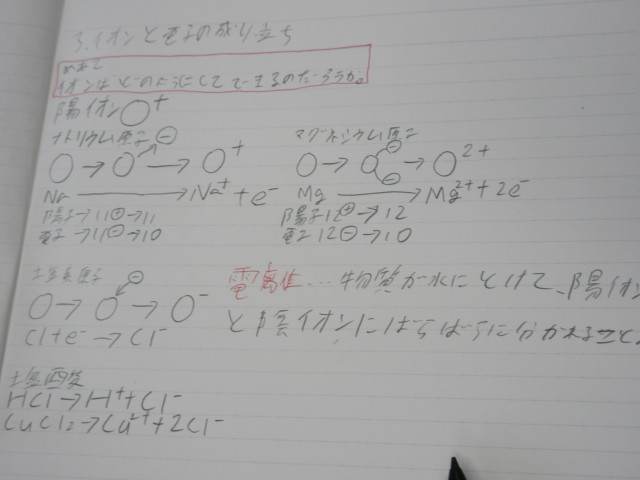 3.イオンと電子の成り立ち
めあて
イオンはどのようにしてできるのだろうか。
陽イオン○+
ナトリウム原子 ⊖
○→○→○+
Na→Na⁺+e⁻
陽子→11⊕→11
電子→11⊖→10
マグネシウム原子
⊖
○→○→○2+
⊖
Mg→Mg²⁺+2e⁻
陽子12⊕→12
電子12⊖→10
塩素原子 ⊖
○→○→○⁻
Cl+e⁻→Cl⁻
電離…物質が水にとけて、陽イオン
と陰イオンにばらばらに分かれること。
HCl→H⁺+Cl⁻
CuCl₂→Cu²⁺+2Cl⁻